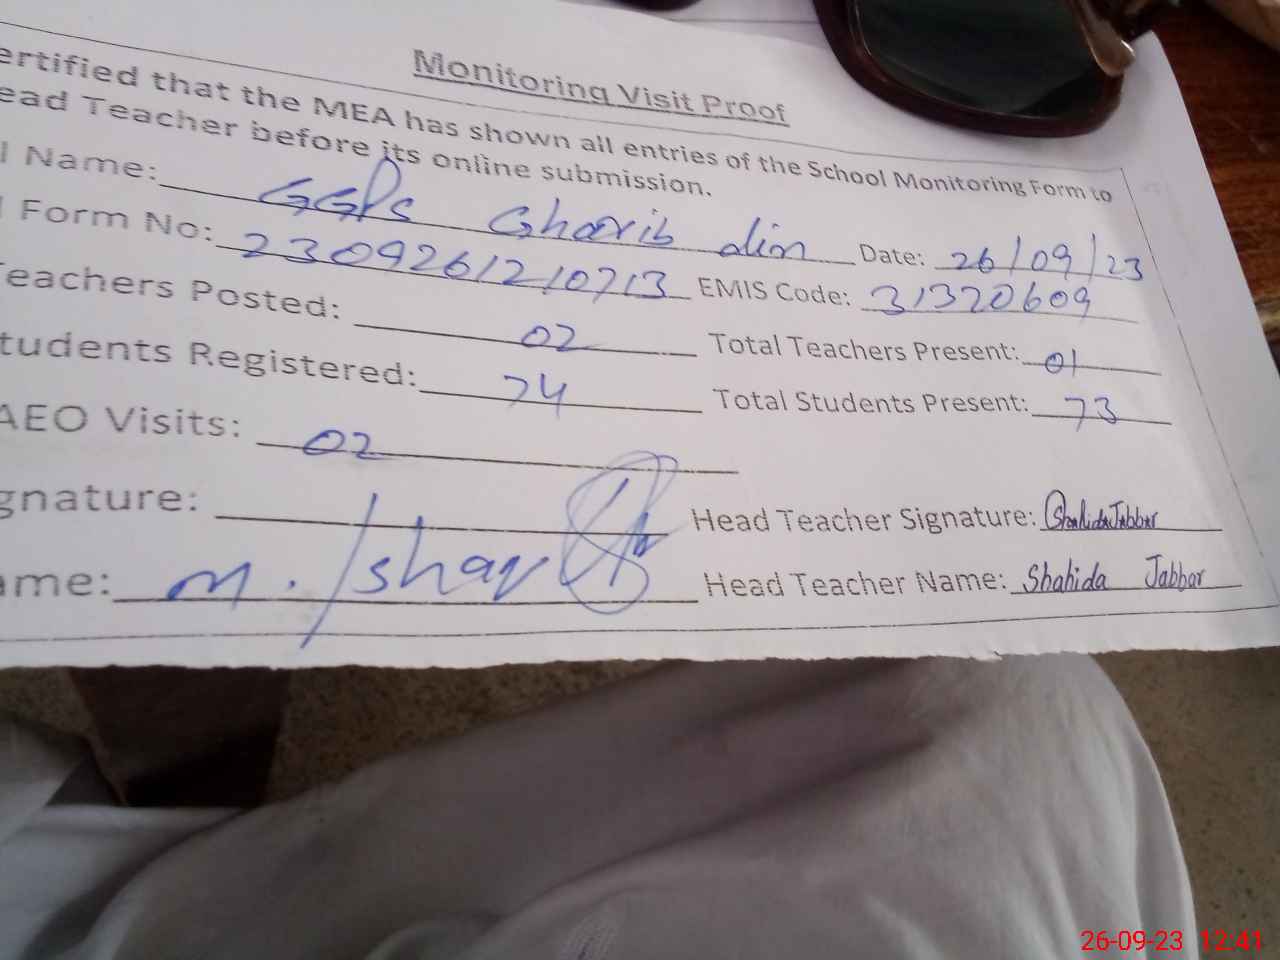 Monitoring Visit Proof
ertified that the MEA has shown all entries of the School Monitoring Form to
ead Teacher before its online submission.
l Name: GGPS Gharib din Date: 26/09/23
l Form No: 2309261210713 EMIS Code: 31320609
Teachers Posted: 02 Total Teachers Present: 01
tudents Registered: 74 Total Students Present: 73
AEO Visits: 02
gnature: Head Teacher Signature: Shahida Jabbar
ame: M. Ishaq Head Teacher Name: Shahida Jabbar
26-09-23 12:41